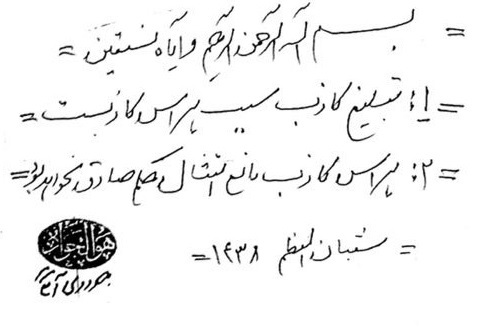 = بسم الله الرحمن الرحیم و ایاه نستعین =
= ۱: تبلیغ کاذب سبب هراس کاذبست =
= ۲: هراس کاذب مانع امتثال حکم صادق نخواهد بود =
= شعبان المعظم ۱۴۳۸ =
هو الجواد
جوادی آملی